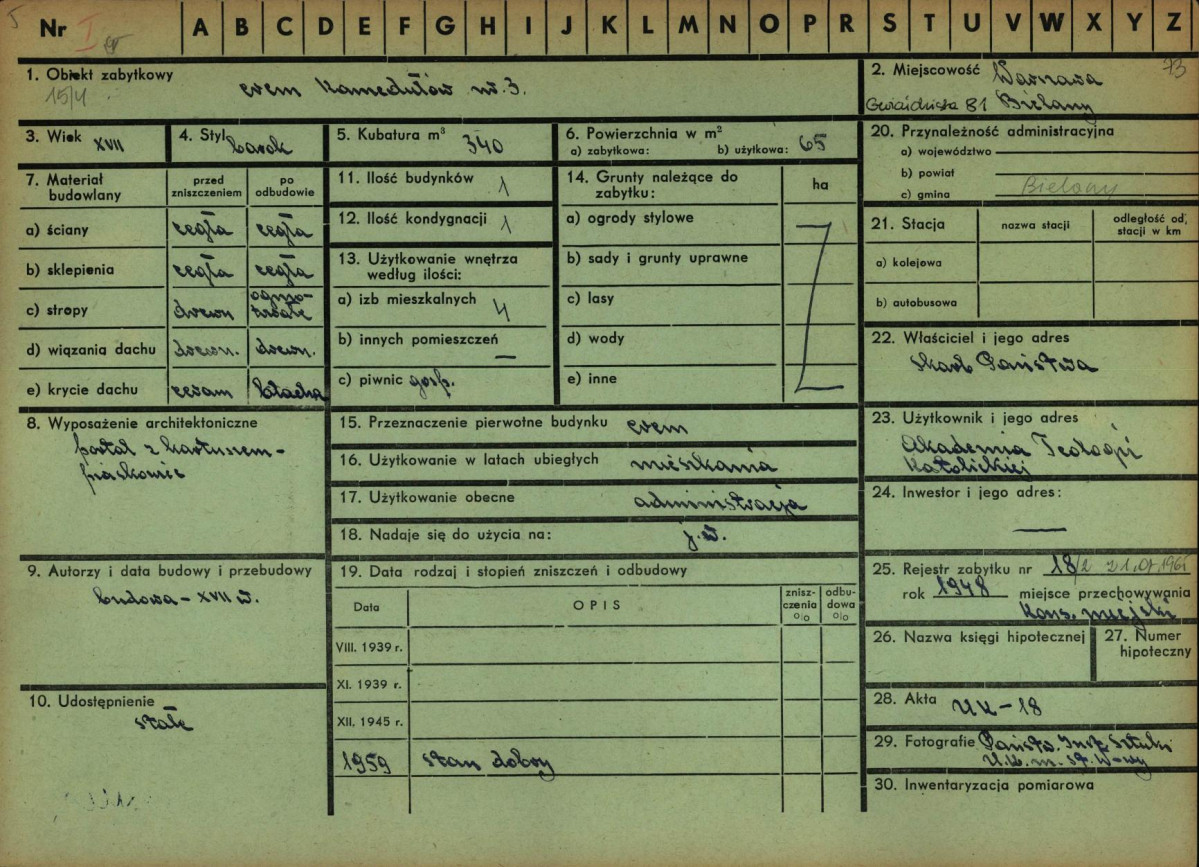 5
Nr I
A B C D E F G H I J K L M N O P R S T U V W X Y Z
1. Obiekt zabytkowy
15/4
erem Kamedułów nr. 3.
2. Miejscowość Warszawa
73
81 Bielany
3. Wiek XVII
4. Styl barok
5. Kubatura m³ 340
6. Powierzchnia w m²
a) zabytkowa: b) użytkowa: 65
20. Przynależność administracyjna
a) województwo
b) powiat
c) gmina Bielany
7. Materiał budowlany
przed zniszczeniem
po odbudowie
a) ściany cegła cegła
b) sklepienia cegła cegła
c) stropy drewn ogniotrwałe
d) wiązania dachu drewn. drewn.
e) krycie dachu ceram blacha
11. Ilość budynków 1
12. Ilość kondygnacji 1
13. Użytkowanie wnętrza
według ilości:
a) izb mieszkalnych 4
b) innych pomieszczeń —
c) piwnic gosp.
14. Grunty należące do
zabytku:
ha
a) ogrody stylowe
b) sady i grunty uprawne
c) lasy
d) wody
e) inne
21. Stacja
nazwa stacji
odległość od stacji w km
a) kolejowa
b) autobusowa
22. Właściciel i jego adres
Skarb Państwa
8. Wyposażenie architektoniczne
portal z kartuszem -
piaskowiec
15. Przeznaczenie pierwotne budynku erem
16. Użytkowanie w latach ubiegłych mieszkania
17. Użytkowanie obecne administracja
18. Nadaje się do użycia na: j.w.
23. Użytkownik i jego adres
Akademia Teologii
Katolickiej
24. Inwestor i jego adres:
—
9. Autorzy i data budowy i przebudowy
budowa - XVII w.
19. Data rodzaj i stopień zniszczeń i odbudowy
Data
OPIS
znisz-
czenia
%
odbu-
dowa
%
VIII. 1939 r.
XI. 1939 r.
XII. 1945 r.
1959 stan dobry
25. Rejestr zabytku nr 18/2
rok 1948 miejsce przechowywania
Kons. miejski
26. Nazwa księgi hipotecznej
27. Numer
hipoteczny
10. Udostępnienie
stałe
28. Akta UK-18
29. Fotografie Państw. Inst. Sztuki
U.K. m. st. W-wy
30. Inwentaryzacja pomiarowa